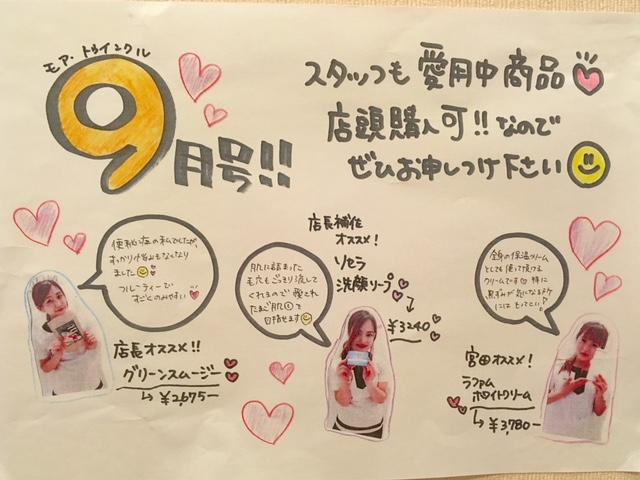 モア・トゥインクル
9月号!!
スタッフも愛用中商品
店頭購入可!!なので
ぜひお申しつけ下さい
便秘症の私でしたが、
すっかり悩みもなくなり
ました
フルーティーで
すごくのみやすい
店長オススメ!!
グリーンスムージー
↳ ¥2,675-
肌に詰まった
毛穴もごっそり流して
くれるので 憧れ
たまご肌 目指せます
店長補佐
オススメ!
リセラ
洗顔ソープ
¥3240
全身の保湿クリーム
としても使って頂ける
クリームです 特に
黒ずみが気になるトコ
にはもってこい♪
宮田オススメ!
ラファム
ホワイトクリーム
↳ ¥3,780-